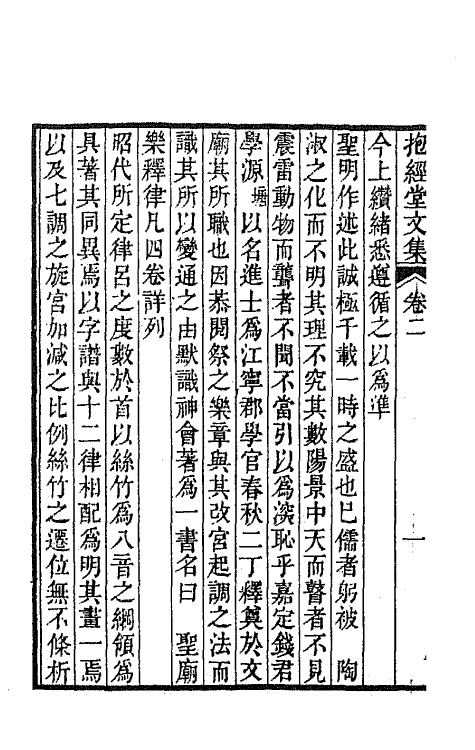 抱經堂文集 卷二 一
今上纘緒悉遵循之以為準
聖明作述此誠極千載一時之盛也已儒者躬被 陶
淑之化而不明其理不究其數陽景中天而瞽者不見
震雷動物而聾者不聞不當引以為深恥乎嘉定錢君
學源塘以名進士為江寧郡學官春秋二丁釋奠於文
廟其所職也因恭閱祭之樂章與其改宮起調之法而
識其所以變通之由默識神會著為一書名曰 聖廟
樂釋律凡四卷詳列
昭代所定律呂之度數於首以絲竹為八音之綱領為
具著其同異焉以字譜與十二律相配為明其畫一焉
以及七調之旋宮加減之比例絲竹之遷位無不條析